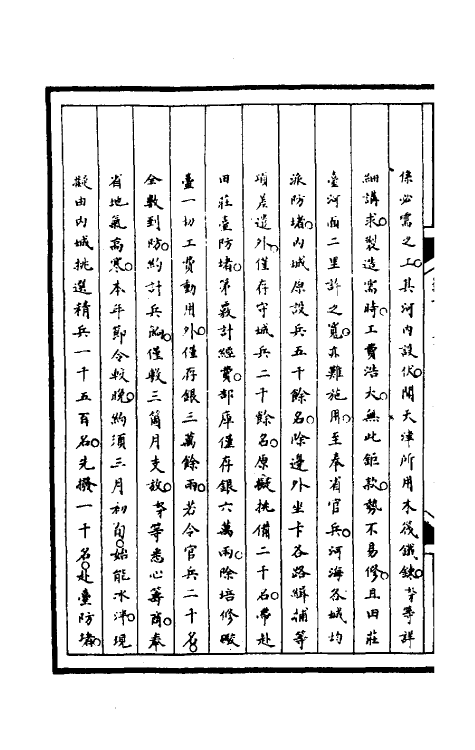 係必需之工其河内設伏聞天津所用木筏鐵鍊等詳
細講求製造需時工費浩大無此鉅款勢不易修且田莊
臺河面二里許之寬亦難施用至奉省官兵河海各城均
派防堵内城原設兵五千餘名除邊外坐卡各路緝捕等
項差遣外僅存守城兵二千餘名原擬挑備二千名帶赴
田莊臺防堵第覈計經費部庫僅存銀六萬兩除培修礮
臺一切工費動用外僅存銀三萬餘兩若令官兵二千名
全數到防約計兵餉僅敷三箇月支放等悉心籌商奉
省地氣高寒本年節令較晚約須三月初旬始能冰泮現
擬由内城挑選精兵一千五百名先撥一千名赴臺防堵